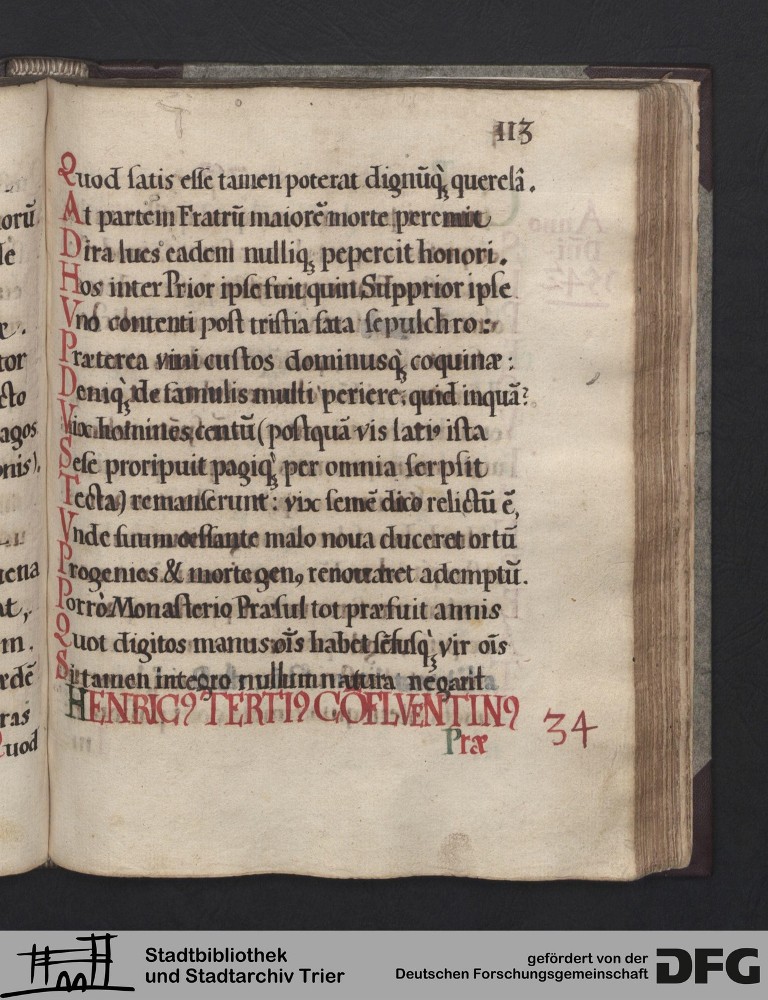 113
Quod satis esse tamen poterat dignūq́ꝫ querelâ.
At partem Fratrū maiorē morte peremit
Dira lues eadem nulliqꝫ pepercit honori.
Hos inter Prior ipse fuit quin Supprior ipse
Vno contenti post tristia fata sepulchro:
Præterea vini custos dominusq́ꝫ coquinæ:
Deniq́ꝫ de famulis multi periere: quid inquā?
Vix homines centū (postquā vis latiꝰ ista
Sese proripuit pagiq́ꝫ per omnia serpsit
Tecta) remanserunt: vix semē dico relictū ē,
Vnde suum cessante malo noua duceret ortū
Progenies & morte genꝰ renouaret ademptū.
Porrò Monasterio Præsul tot præfuit annis
Quot digitos manus oīs habet sēsusq́ꝫ vir oīs
Si tamen integro nullum natura negarit
HENRICꝰ TERTIꝰ CŌFLVENTINꝰ
34
Præ
orū
le
æ.
tor
cto
agos
onis).
ena
at,
m.
rdē
ras
Quod
Stadtbibliothek
und Stadtarchiv Trier
gefördert von der
Deutschen Forschungsgemeinschaft
DFG